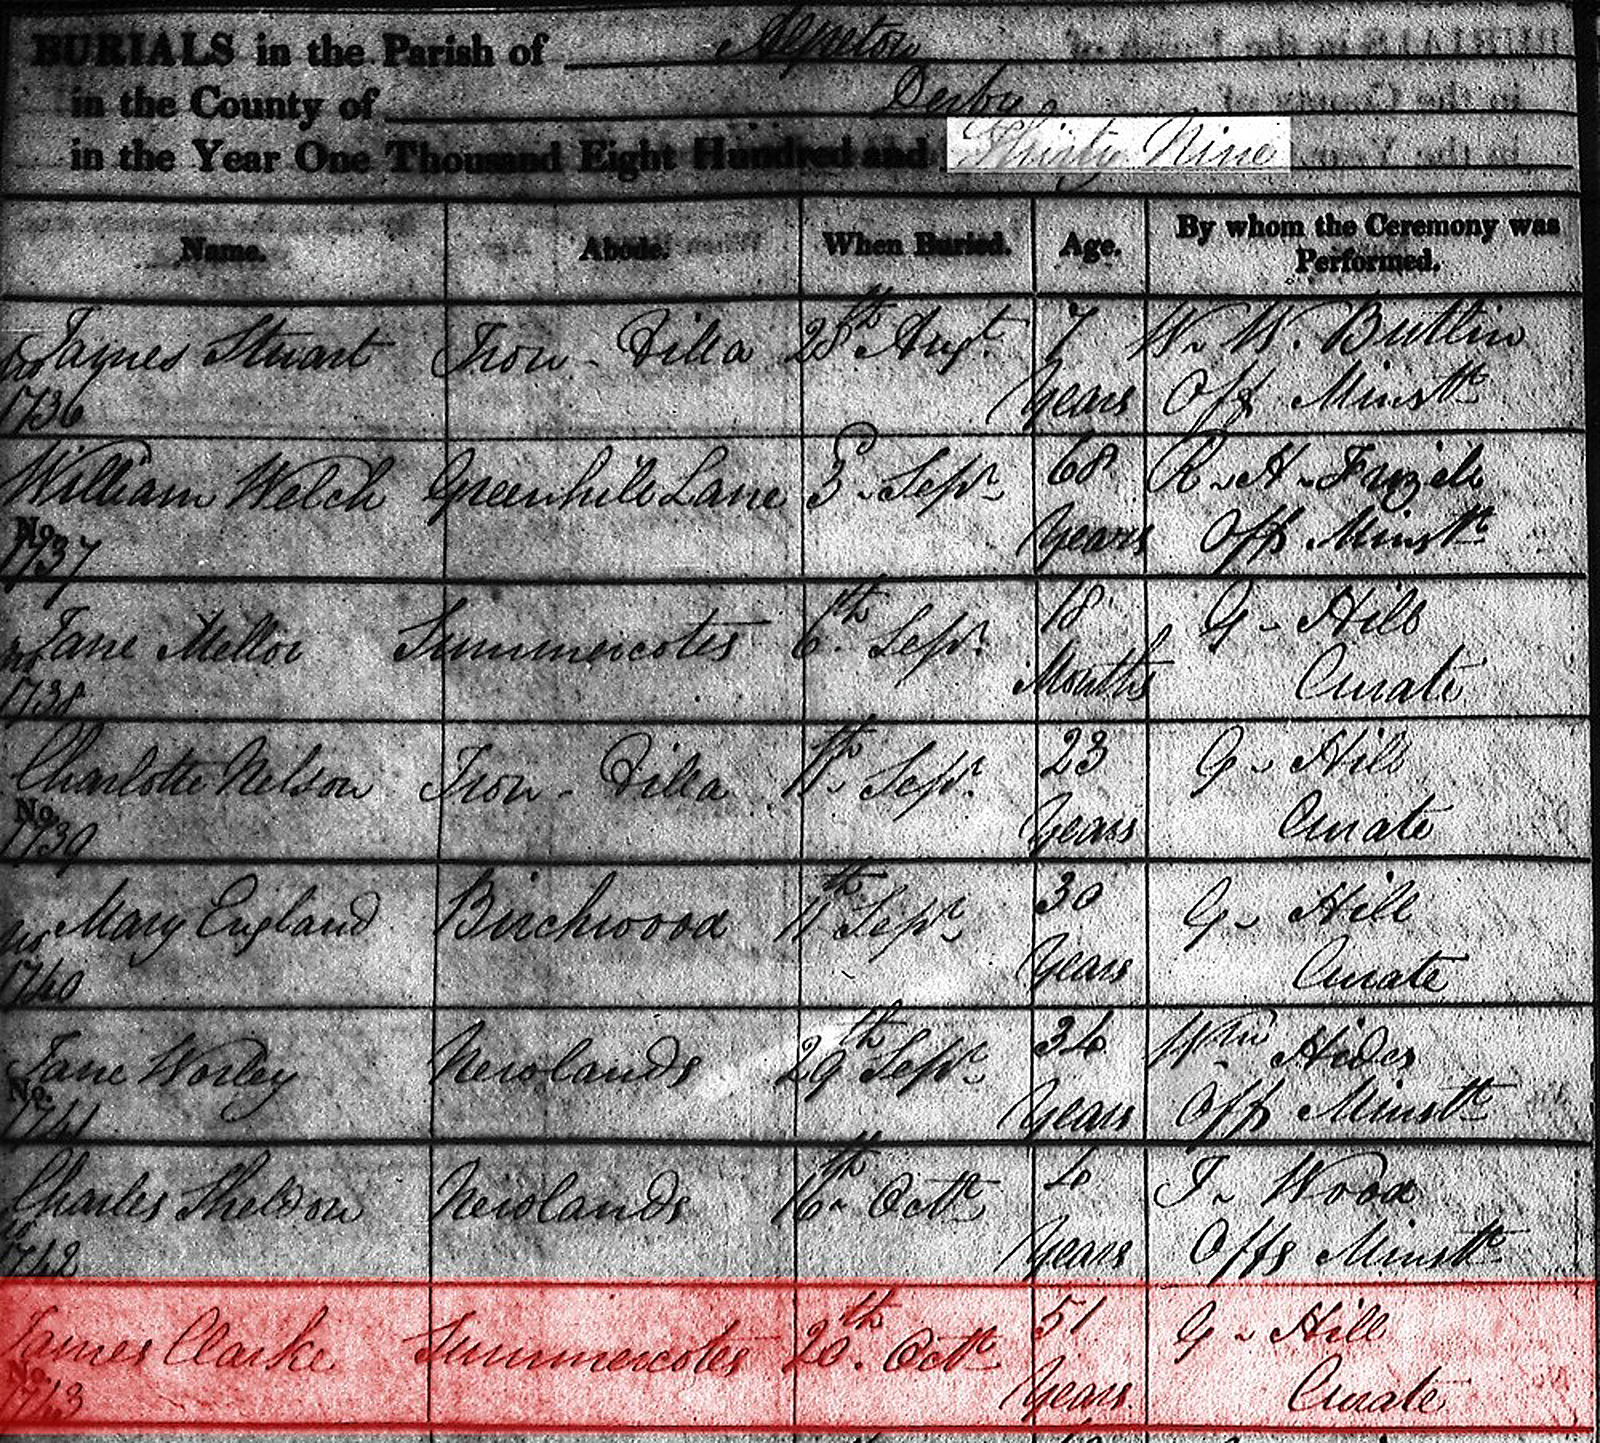 BURIALS in the Parish of
in the County of Derby
in the Year One Thousand Eight Hundred and Thirty Nine
Name. Abode. When Buried. Age. By whom the Ceremony was
Performed.
James Stuart Iron - Villa 28th Augt. 7 W. W. Butlin
No 1736 Years Off Minstr
William Welch Greenhill Lane 3 Sepr 68 R. H. Frizell
No. 1737 Years Off Minstr
Jane Mellor Summercotes 6th Sepr 18 G. Hill
No 1738 Months Curate
Charlotte Nelson Iron - Villa Sepr 23 G. Hill
No. 1739 Years Curate
Mary England Birchwood 11th Sepr 30 G. Hill
No 1740 Years Curate
Jane Worley Newlands 29th Sepr 34 Wm
No. 1741 Years Off Minstr
Charles Sheldon Newlands 16th Octr 4 Wood
1742 Years Offg Minstr
James Clarke Summercotes 20th Octr 51 G. Hill
No. 1743 Years. Curate